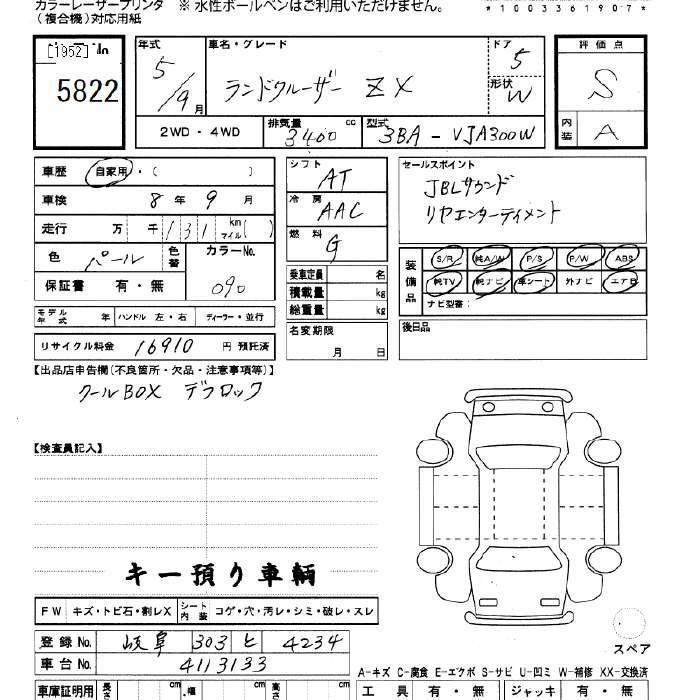 カラーレーザープリンタ ※ 水性ボールペンはご利用いただけません。
（複合機）対応用紙
*1003361907*
[1952]
5822
年式 5/9月
車名・グレード ランドクルーザー ZX
ドア 5
形状 W
評価点 S
内装 A
2WD・4WD
排気量 3400 cc
型式 3BA-VJA300W
車歴 自家用・( )
車検 8年9月
走行 万 千 131 km マイル( )
色 パール 色替
カラーNo. 090
保証書 有・無
シフト AT
冷房 AAC
燃料 G
乗車定員 名
積載量 kg
総重量 kg
名変期限 月 日
セールスポイント
JBLサウンド
リヤエンターティメント
装備品 S/R 純A/W P/S P/W ABS
純TV 純ナビ 革シート 外ナビ エアB
ナビ型番:
後日品
モデル年式 年 ハンドル 左・右 ディーラー・並行
リサイクル料金 16910 円 預託済
【出品店申告欄(不良箇所・欠品・注意事項等)】
クールBOX デフロック
【検査員記入】
キー預り車輌
FW キズ・トビ石・割レX シート内装 コゲ・穴・汚レ・シミ・破レ・スレ
登録No. 岐阜 303 ヒ 4234
車台No. 4113133
スペア
A-キズ C-腐食 E-エクボ S-サビ U-凹ミ W-補修 XX-交換済
車庫証明用 長さ cm 幅 cm 高さ cm 工具 有・無 ジャッキ 有・無